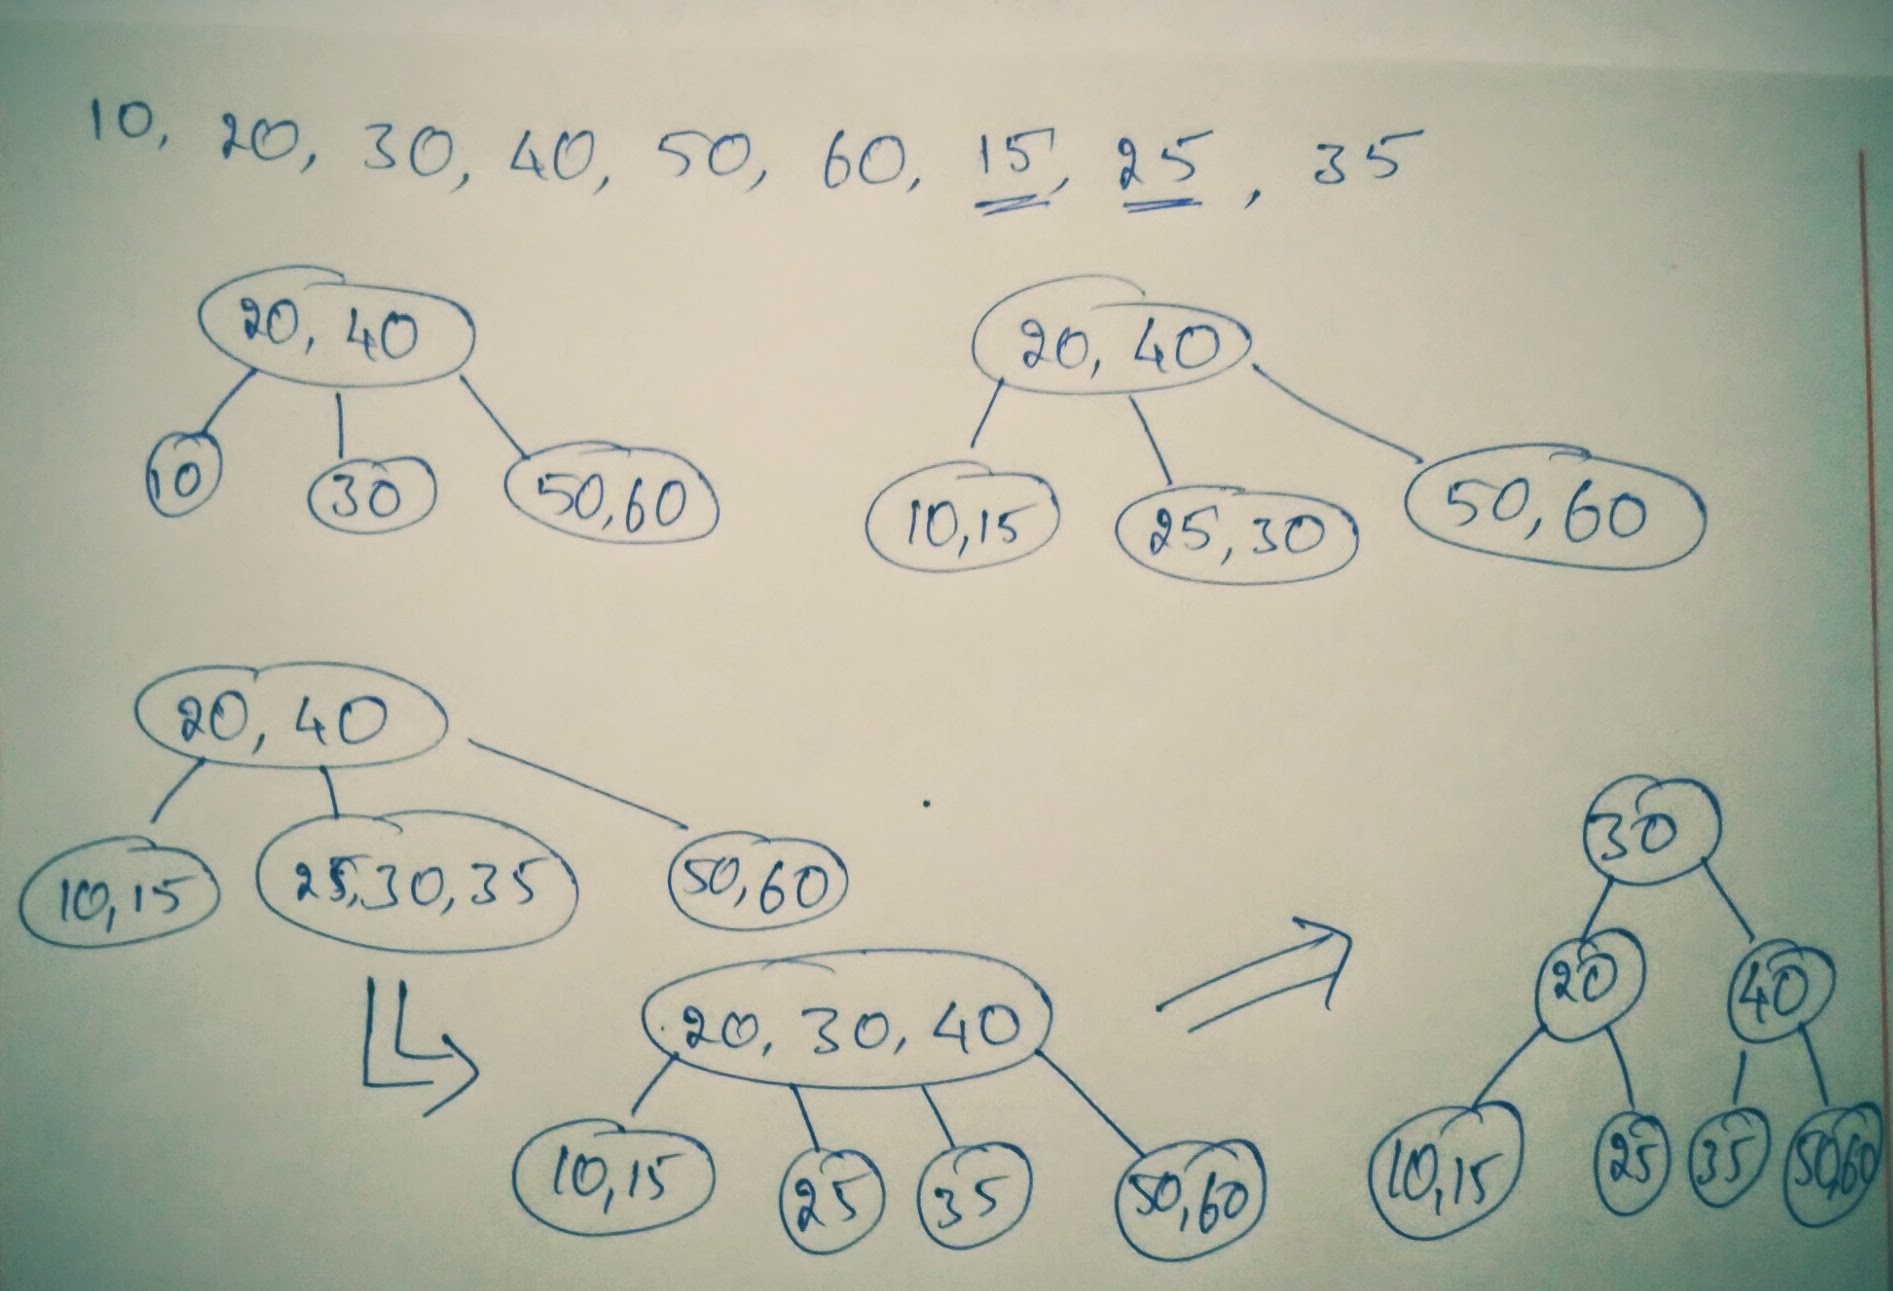 10, 20, 30, 40, 50, 60, 15, 25, 35
20, 40
10
30
50,60
20, 40
10,15
25,30
50,60
20, 40
10,15
25,30,35
50,60
20, 30, 40
10,15
25
35
50,60
30
20
40
10,15
25
35
50,60